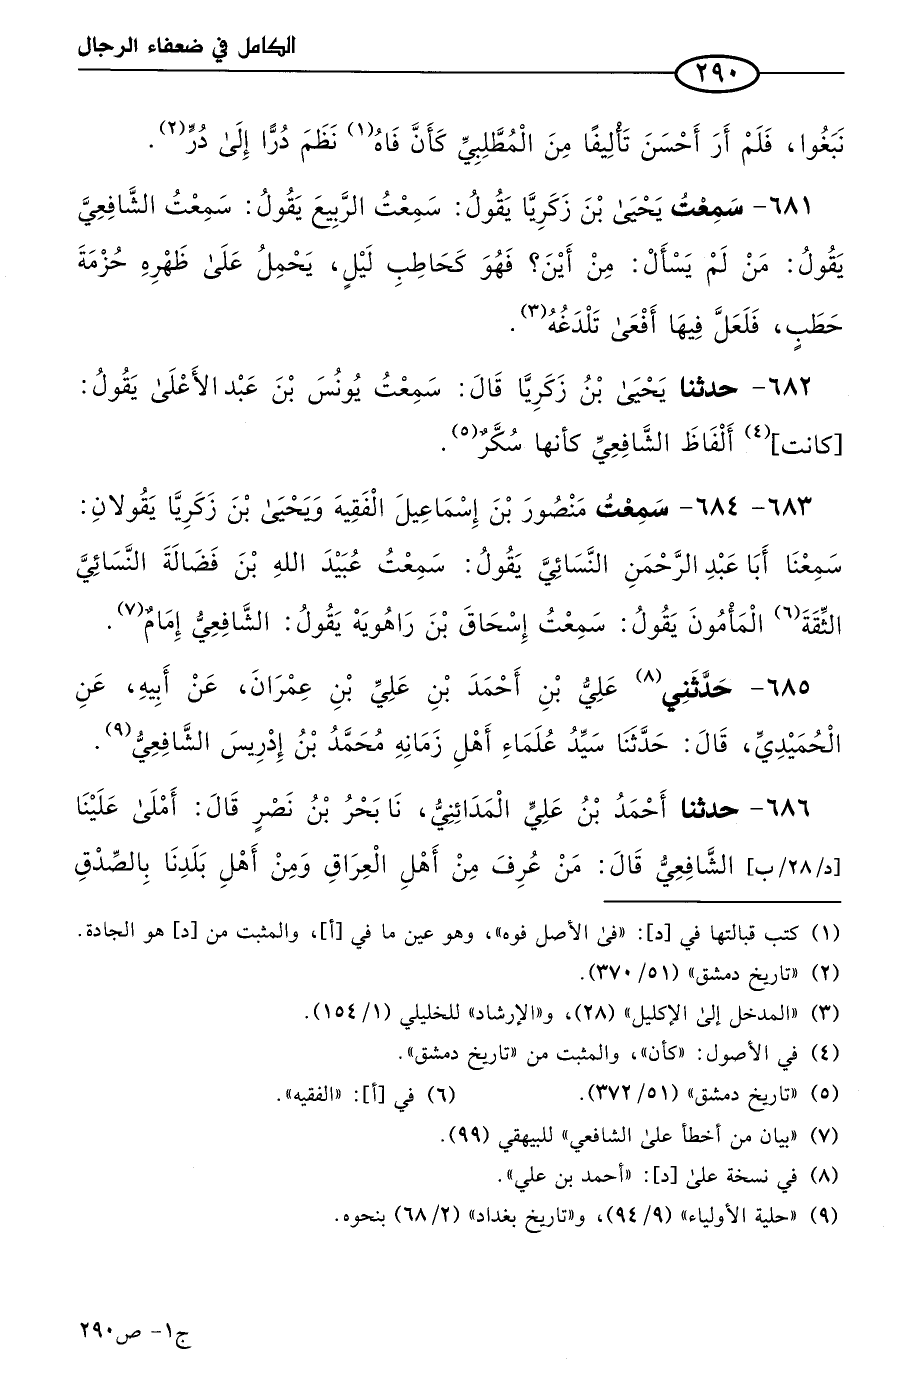 الكامل في ضعفاء الرجال
٢٩٠
نَبَغُوا، فَلَمْ أَرَ أَحْسَنَ تَأْلِيفًا مِنَ الْمُطَّلِبِيِّ كَأَنَّ فَاهُ(١) نَظَمَ دُرًّا إِلَىٰ دُرٍّ(٢).
٦٨١- سَمِعْتُ يَحْيَىٰ بْنَ زَكَرِيَّا يَقُولُ: سَمِعْتُ الرَّبِيعَ يَقُولُ: سَمِعْتُ الشَّافِعِيَّ
يَقُولُ: مَنْ لَمْ يَسْأَلْ: مِنْ أَيْنَ؟ فَهُوَ كَحَاطِبِ لَيْلٍ، يَحْمِلُ عَلَىٰ ظَهْرِهِ حُزْمَةَ
حَطَبٍ، فَلَعَلَّ فِيهَا أَفْعَىٰ تَلْدَغُهُ(٣).
٦٨٢- حدثنا يَحْيَىٰ بْنُ زَكَرِيَّا قَالَ: سَمِعْتُ يُونُسَ بْنَ عَبْد الأَعْلَىٰ يَقُولُ:
[كانت](٤) أَلْفَاظَ الشَّافِعِيِّ كأنها سُكَّرٌ(٥).
٦٨٣- ٦٨٤- سَمِعْتُ مَنْصُورَ بْنَ إِسْمَاعِيلَ الْفَقِيهَ وَيَحْيَىٰ بْنَ زَكَرِيَّا يَقُولانِ:
سَمِعْنَا أَبَا عَبْدِ الرَّحْمَنِ النَّسَائِيَّ يَقُولُ: سَمِعْتُ عُبَيْدَ اللهِ بْنَ فَضَالَةَ النَّسَائِيَّ
الثِّقَةَ(٦) الْمَأْمُونَ يَقُولُ: سَمِعْتُ إِسْحَاقَ بْنَ رَاهُويَهْ يَقُولُ: الشَّافِعِيُّ إِمَامٌ(٧).
٦٨٥- حَدَّثَنِي(٨) عَلِيُّ بْنِ أَحْمَدَ بْنِ عَلِيِّ بْنِ عِمْرَانَ، عَنْ أَبِيهِ، عَنِ
الْحُمَيْدِيِّ، قَالَ: حَدَّثَنَا سَيِّدُ عُلَمَاءِ أَهْلِ زَمَانِهِ مُحَمَّدُ بْنُ إِدْرِيسَ الشَّافِعِيُّ(٩).
٦٨٦- حدثنا أَحْمَدُ بْنُ عَلِيٍّ الْمَدَائِنِيُّ، نَا بَحْرُ بْنُ نَصْرٍ قَالَ: أَمْلَىٰ عَلَيْنَا
[د/٢٨/ب] الشَّافِعِيُّ قَالَ: مَنْ عُرِفَ مِنْ أَهْلِ الْعِرَاقِ وَمِنْ أَهْلِ بَلَدِنَا بِالصِّدْقِ
(١) كتب قبالتها في [د]: «فى الأصل فوه»، وهو عين ما في [أ]، والمثبت من [د] هو الجادة.
(٢) «تاريخ دمشق» (٥١/ ٣٧٠).
(٣) «المدخل إلىٰ الإكليل» (٢٨)، و«الإرشاد» للخليلي (١/ ١٥٤).
(٤) في الأصول: «كأن»، والمثبت من «تاريخ دمشق».
(٥) «تاريخ دمشق» (٥١/ ٣٧٢). (٦) في [أ]: «الفقيه».
(٧) «بيان من أخطأ علىٰ الشافعي» للبيهقي (٩٩).
(٨) في نسخة علىٰ [د]: «أحمد بن علي».
(٩) «حلية الأولياء» (٩/ ٩٤)، و«تاريخ بغداد» (٢/ ٦٨) بنحوه.
ج١- ص٢٩٠